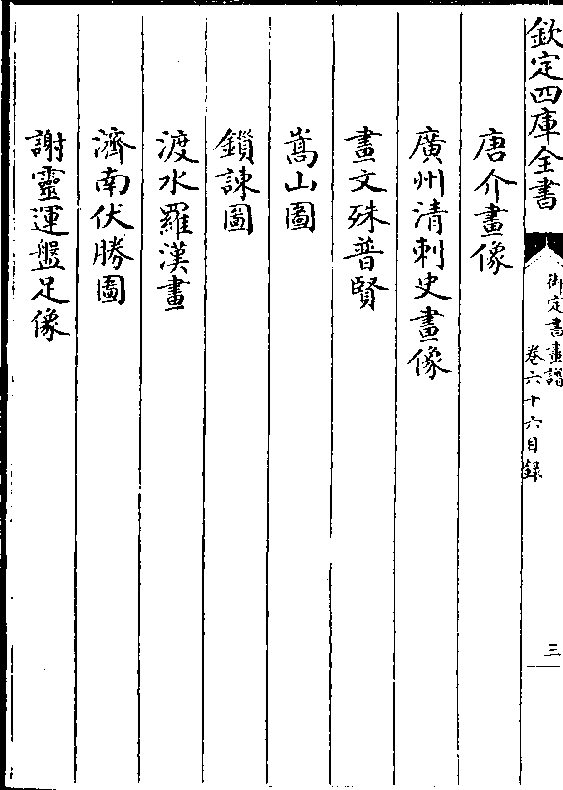 欽定四庫全書
御定書畫譜
卷六十六目錄
三
唐介畫像
廣州清刺史畫像
畫文殊普賢
嵩山圖
鎖諫圖
渡水羅漢畫
濟南伏勝圖
謝靈運盤足像